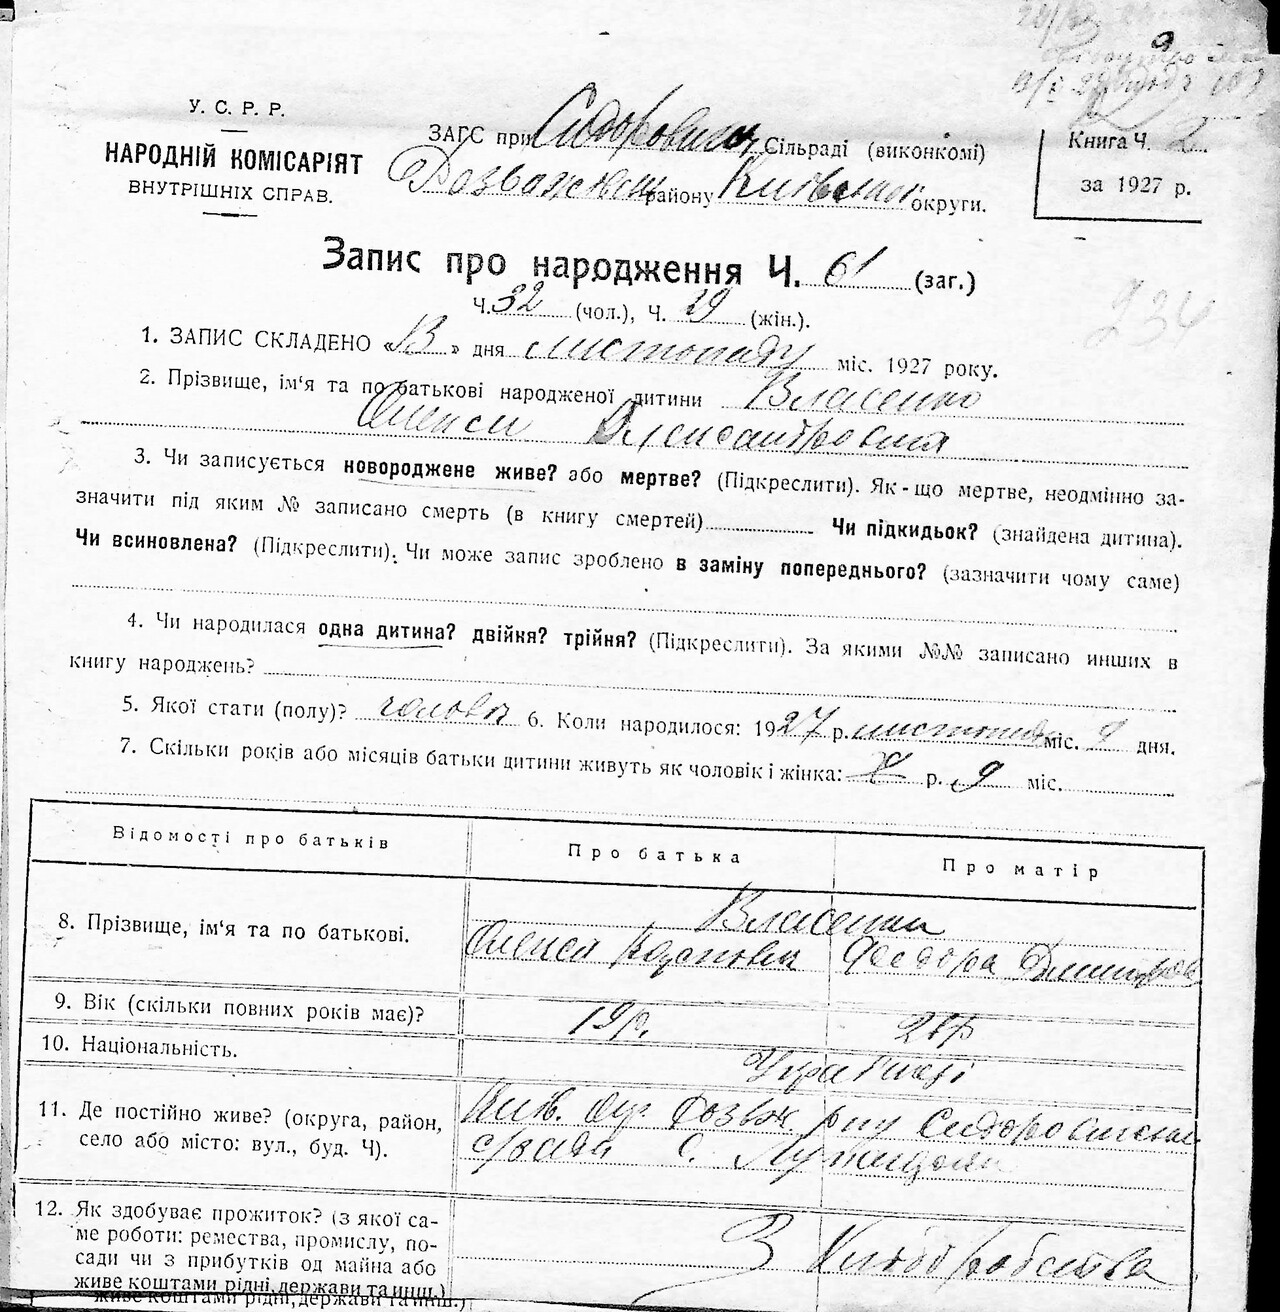 У. С. Р. Р.
НАРОДНІЙ КОМІСАРІЯТ
ВНУТРІШНІХ СПРАВ.
ЗАГС при Сидоровицьк. Сільраді (виконкомі)
району Київської округи.
Книга Ч. 2
за 1927 р.
Запис про народження Ч. 61 (заг.)
Ч. 32 (чол.), Ч. 29 (жін.).
234
1. ЗАПИС СКЛАДЕНО «13» дня листопаду міс. 1927 року.
2. Прізвище, ім'я та по батькові народженої дитини Власенко
Олекси
3. Чи записується новороджене живе? або мертве? (Підкреслити). Як-що мертве, неодмінно за-
значити під яким № записано смерть (в книгу смертей) Чи підкидьок? (знайдена дитина).
Чи всиновлена? (Підкреслити). Чи може запис зроблено в заміну попереднього? (зазначити чому саме)
4. Чи народилася одна дитина? двійня? трійня? (Підкреслити). За якими №№ записано инших в
книгу народжень?
5. Якої стати (полу)? чоловіч 6. Коли народилося: 1927 р. листопада міс. 9 дня.
7. Скільки років або місяців батьки дитини живуть як чоловік і жінка: р. 9 міс.
Відомості про батьків Про батька Про матір
8. Прізвище, ім'я та по батькові.
Власенки
Олекса Феодора Дмитров
9. Вік (скільки повних років має)? 19 р. 20 р
10. Національність. Українці
11. Де постійно живе? (округа, район,
село або місто: вул., буд. Ч).
Київ. окр. Розваж. р-ну Сидоровицьк
с/ради с.
12. Як здобуває прожиток? (з якої са-
ме роботи: ремества, промислу, по-
сади чи з прибутків од майна або
живе коштами рідні, держави та инш.)
З хліборобства
живе коштами рідні, держави та инш.)